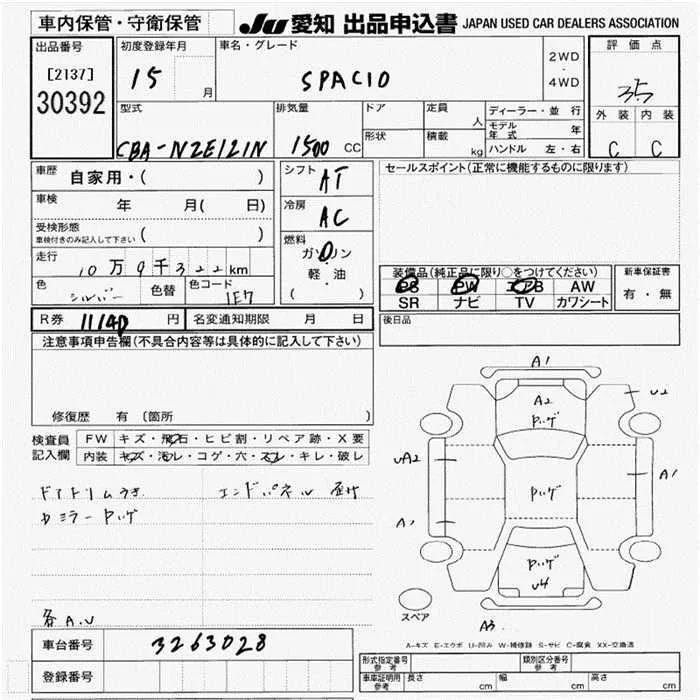 車内保管・守衛保管
JU 愛知 出品申込書 JAPAN USED CAR DEALERS ASSOCIATION
出品番号
[2137]
30392
初度登録年月
15 月
車名・グレード
SPACIO
2WD
・
4WD
評価点
3.5
外装 内装
C C
型式
CBA-NZE121N
排気量
1500 CC
ドア
形状
定員 人
積載 kg
ディーラー・並行
モデル年式 年
ハンドル 左・右
車歴 自家用・( )
車検 年 月( 日)
受検形態
車検付きのみ記入して下さい ( )
走行
10万9千322km
色 シルバー
色替
色コード
1E7
シフト
AT
冷房
AC
燃料
ガソリン
・
軽・油
( )
セールスポイント(正常に機能するものに限ります)
装備品(純正品に限り○をつけてください)
PS PW エアB AW
SR ナビ TV カワシート
新車保証書
有・無
R券 11140 円
名変通知期限 月 日
後日品
注意事項申告欄(不具合内容等は具体的に記入して下さい)
修復歴 有〔箇所 〕
検査員
記入欄
FW キズ・飛石・ヒビ割・リペア跡・X要
内装 キズ・汚レ・コゲ・穴・スレ・キレ・破レ
ドアトリムうき
エンドパネル
カミラーハゲ
各A.U
A1
A2
ハゲ
U2
UA2
A1
ハゲ
A1
ハゲ
U4
スペア
A3
A-キズ E-エクボ U-凹み W-補修跡 S-サビ C-腐食 XX-交換済
車台番号
3263028
登録番号
形式指定番号
参考
類別区分番号
参考
車庫証明用
参考
長さ cm
幅 cm
高さ cm